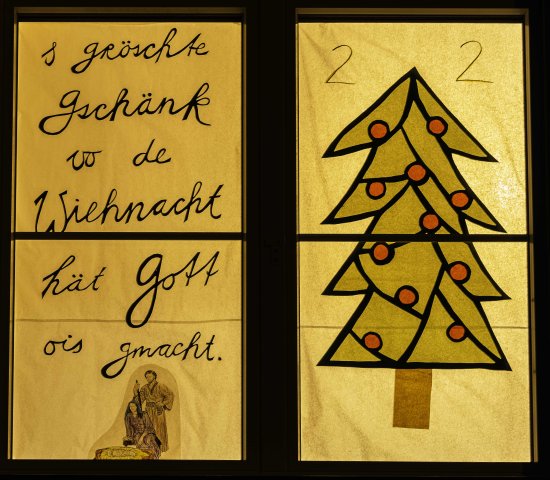 s gröschte
Gschänk
vo de
Wiehnacht
hät Gott
ois gmacht.
2 2